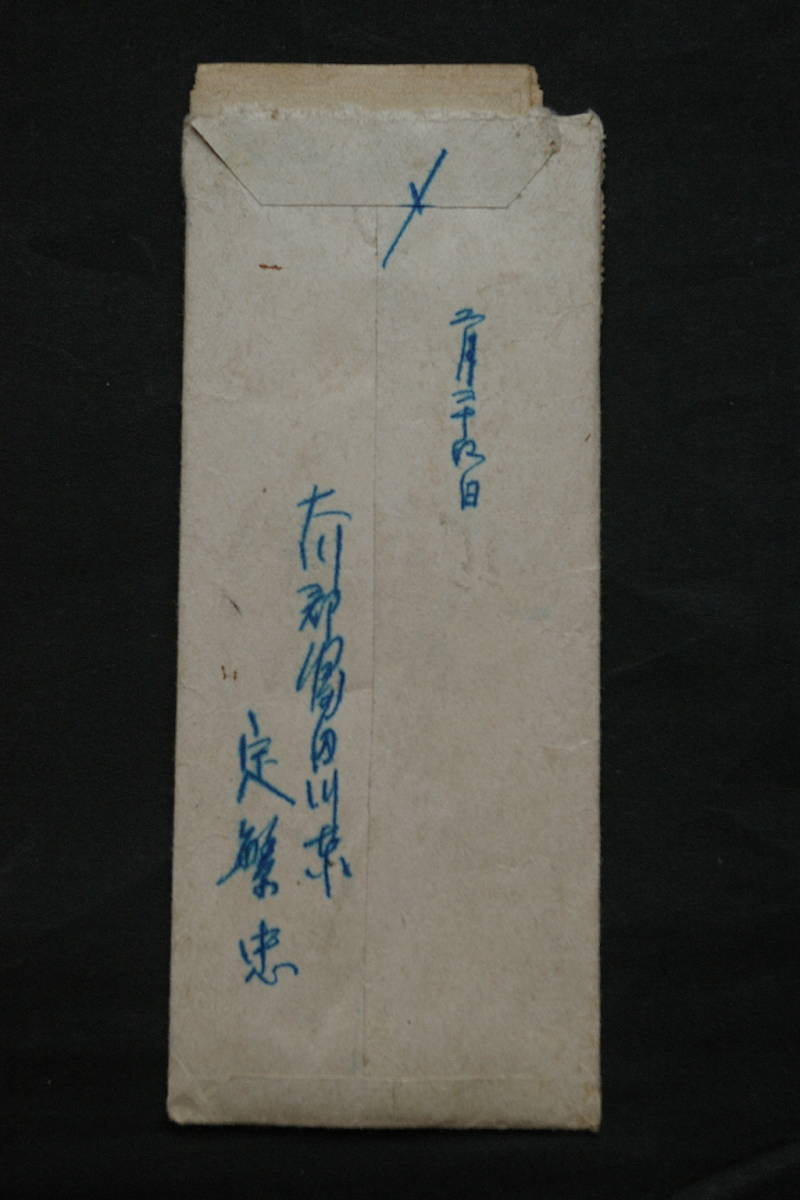 〆
二月二十四日
大川郡富田川東
定繁忠